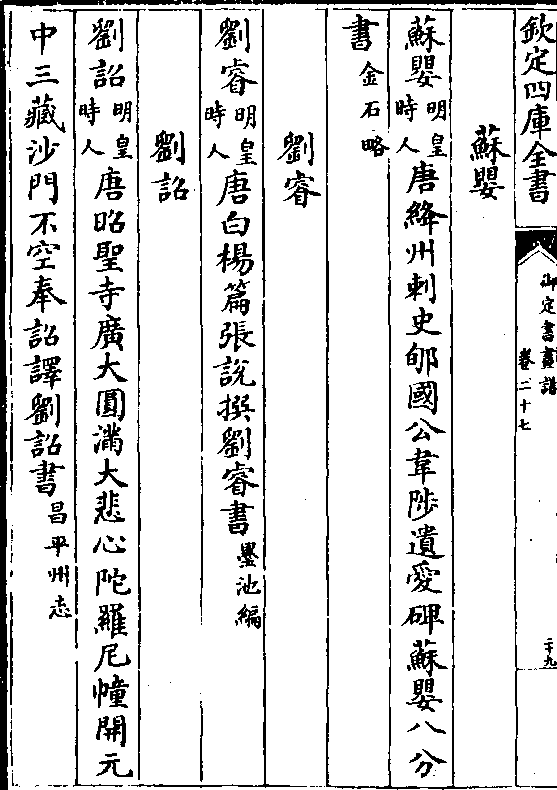 欽定四庫全書
御定書畫譜
卷二十七
二十九
蘇嬰
蘇嬰明皇時人唐絳州刺史郇國公韋陟遺愛碑蘇嬰八分
書金石略
劉睿
劉睿明皇時人唐白楊篇張說撰劉睿書墨池編
劉詔
劉詔明皇時人唐昭聖寺廣大圓滿大悲心陀羅尼幢開元
中三藏沙門不空奉詔譯劉詔書昌平州志